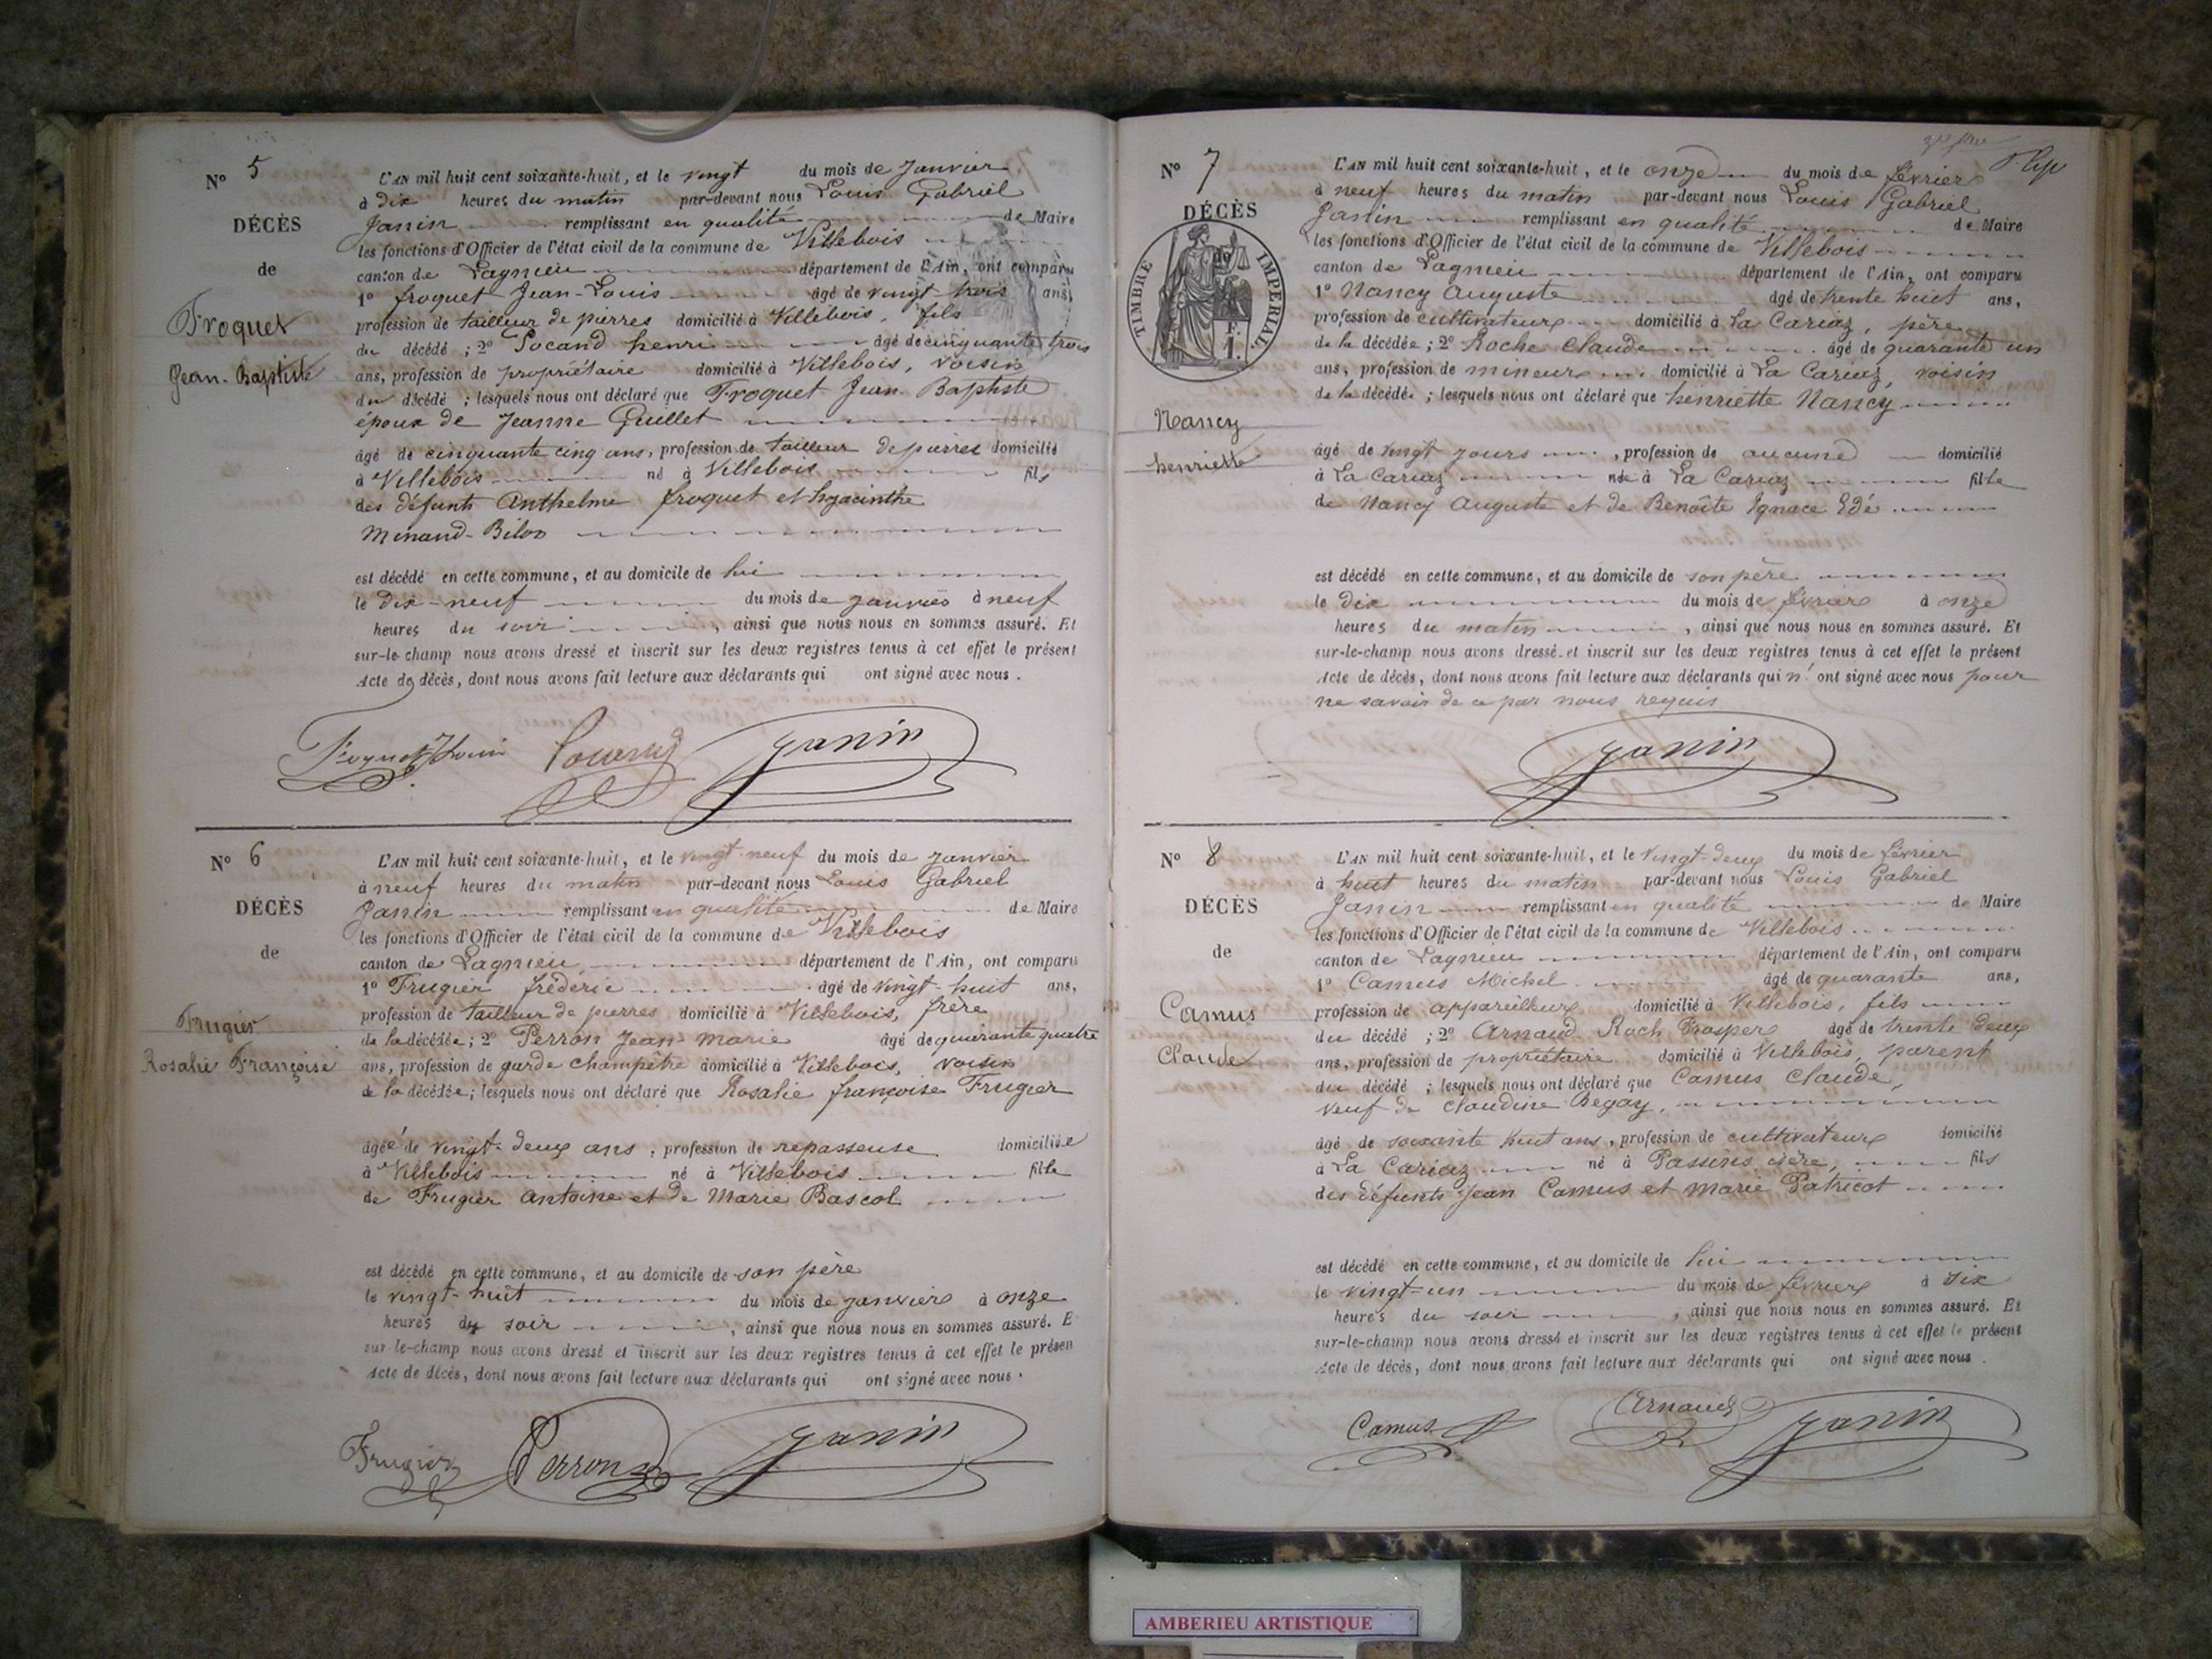 N° 5
DÉCÈS
de
Froquet
Jean-Baptiste
L'AN mil huit cent soixante-huit, et le vingt du mois de Janvier
à dix heures du matin par-devant nous Louis Gabriel
Janin remplissant en qualité de Maire
les fonctions d'Officier de l'état civil de la commune de Villebois
canton de Lagnieu département de l'Ain, ont comparu
1° froquet Jean-Louis âgé de vingt-trois ans,
profession de tailleur de pierres domicilié à Villebois, fils
du décédé ; 2° Socand henri âgé de cinquante trois
ans, profession de propriétaire domicilié à Villebois, voisin
du décédé ; lesquels nous ont déclaré que Froquet Jean-Baptiste
époux de Jeanne Guillet
âgé de cinquante cinq ans, profession de tailleur de pierres domicilié
à Villebois né à Villebois fils
des défunts Anthelme froquet et hyacinthe
Minand-Biloz
est décédé en cette commune, et au domicile de lui
le dix-neuf du mois de janvier à neuf
heures du soir, ainsi que nous nous en sommes assuré. Et
sur-le-champ nous avons dressé et inscrit sur les deux registres tenus à cet effet le présent
Acte de décès, dont nous avons fait lecture aux déclarants qui ont signé avec nous.
Froquet JLouis Janin
N° 6
DÉCÈS
de
Frugier
Rosalie Françoise
L'AN mil huit cent soixante-huit, et le vingt-neuf du mois de janvier
à neuf heures du matin par-devant nous Louis Gabriel
Janin remplissant en qualité de Maire
les fonctions d'Officier de l'état civil de la commune de Villebois
canton de Lagnieu département de l'Ain, ont comparu
1° Frugier frédéric âgé de vingt-huit ans,
profession de tailleur de pierres domicilié à Villebois, frère
de la décédée ; 2° Perron Jean-Marie âgé de quarante quatre
ans, profession de garde champêtre domicilié à Villebois, voisin
de la décédée ; lesquels nous ont déclaré que Rosalie françoise Frugier
âgée de vingt-deux ans, profession de repasseuse domiciliée
à Villebois né à Villebois fille
de Frugier Antoine et de Marie Bascol
est décédé en cette commune, et au domicile de son père
le vingt-huit du mois de janvier à onze
heures du soir, ainsi que nous nous en sommes assuré. E
sur-le-champ nous avons dressé et inscrit sur les deux registres tenus à cet effet le présen
Acte de décès, dont nous avons fait lecture aux déclarants qui ont signé avec nous.
Frugier Perron Janin
N° 7
DÉCÈS
TIMBRE IMPERIAL
1 F.
Nancy
henriette
L'AN mil huit cent soixante-huit, et le onze du mois de février
à neuf heures du matin par-devant nous Louis Gabriel
Janin remplissant en qualité de Maire
les fonctions d'Officier de l'état civil de la commune de Villebois
canton de Lagnieu département de l'Ain, ont comparu
1° Nancy Auguste âgé de trente huit ans,
profession de cultivateur domicilié à La Cariaz, père
de la décédée ; 2° Roche Claude âgé de quarante un
ans, profession de mineur domicilié à La Cariaz, voisin
de la décédée ; lesquels nous ont déclaré que henriette Nancy
âgé de vingt jours, profession de aucune domicilié
à La Cariaz née à La Cariaz fille
de Nancy Auguste et de Benoîte Ignace Edé
est décédé en cette commune, et au domicile de son père
le dix du mois de février à onze
heures du matin, ainsi que nous nous en sommes assuré. Et
sur-le-champ nous avons dressé et inscrit sur les deux registres tenus à cet effet le présent
Acte de décès, dont nous avons fait lecture aux déclarants qui n' ont signé avec nous pour
ne savoir de ce par nous requis
Janin
N° 8
DÉCÈS
de
Camus
Claude
L'AN mil huit cent soixante-huit, et le vingt-deux du mois de février
à huit heures du matin par-devant nous Louis Gabriel
Janin remplissant en qualité de Maire
les fonctions d'Officier de l'état civil de la commune de Villebois
canton de Lagnieu département de l'Ain, ont comparu
1° Camus Michel âgé de quarante ans,
profession de appareilleur domicilié à Villebois, fils
du décédé ; 2° Arnaud Roch Prosper âgé de trente deux
ans, profession de propriétaire domicilié à Villebois, parent
du décédé ; lesquels nous ont déclaré que Camus Claude,
veuf de Claudine Begay,
âgé de soixante huit ans, profession de cultivateur domicilié
à La Cariaz né à Passins isère, fils
des défunts Jean Camus et Marie Patricot
est décédé en cette commune, et au domicile de lui
le vingt-un du mois de février à dix
heures du soir, ainsi que nous nous en sommes assuré. Et
sur-le-champ nous avons dressé et inscrit sur les deux registres tenus à cet effet le présent
Acte de décès, dont nous avons fait lecture aux déclarants qui ont signé avec nous.
Camus Arnaud Janin
AMBERIEU ARTISTIQUE